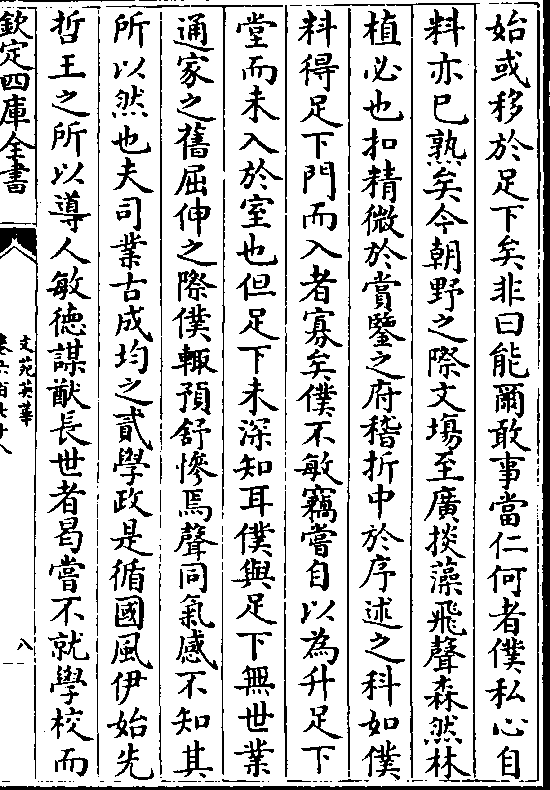 始或移於足下矣非曰能爾敢事當仁何者僕私心自
料亦已熟矣今朝野之際文塲至廣掞藻飛聲森然林
植必也扣精微於賞鑒之府稽折中於序述之科如僕
料得足下門而入者寡矣僕不敏竊嘗自以為升足下
堂而未入於室也但足下未深知耳僕與足下無世業
通家之舊屈伸之際僕輙預舒慘焉聲同氣感不知其
所以然也夫司業古成均之貳學政是循國風伊始先
哲王之所以導人敏德謀猷長世者曷嘗不就學校而
欽定四庫全書
文苑英華
八